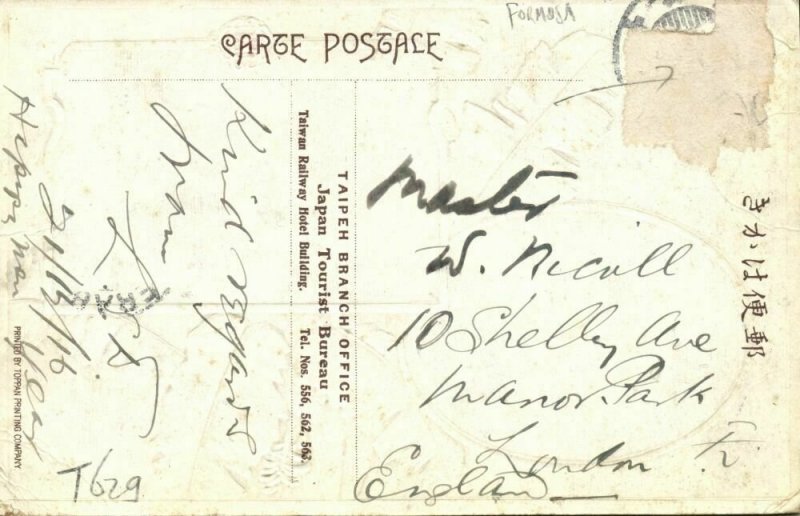 FORMOSA
CARTE POSTALE
きかは便郵
TAIPEH BRANCH OFFICE
Japan Tourist Bureau
Taiwan Railway Hotel Building. Tel. Nos. 556, 562, 563.
Master
W. Nicoll
10 Shelley Ave
Manor Park
London
England
Kind Regards
from
21/12/16
Happy New Year
PRINTED BY TOPPAN PRINTING COMPANY
T629